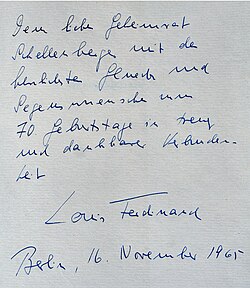 Dem lieben Geheimrat
Schellenberger mit den
herzlichsten Glück und
Segenswünschen zum
70 Geburtstage in treuer
und dankbarer Verbunden-
heit
Louis Ferdinand
Berlin, 16. November 1965